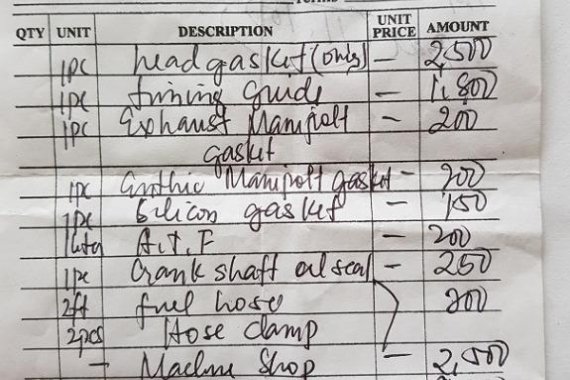 QTY UNIT DESCRIPTION UNIT PRICE AMOUNT
1pc head gasket (only) — 2,500
1pc timing guide — 1,800
1pc Exhaust Manifolt — 200
gasket
1pc Manifolt gasket — 200
1pc Silicon gasket — 150
A.T.F — 200
1pc Crank shaft oil seal — 250
2ft fuel hose 200
2pcs Hose clamp
— Machine Shop — 2,500